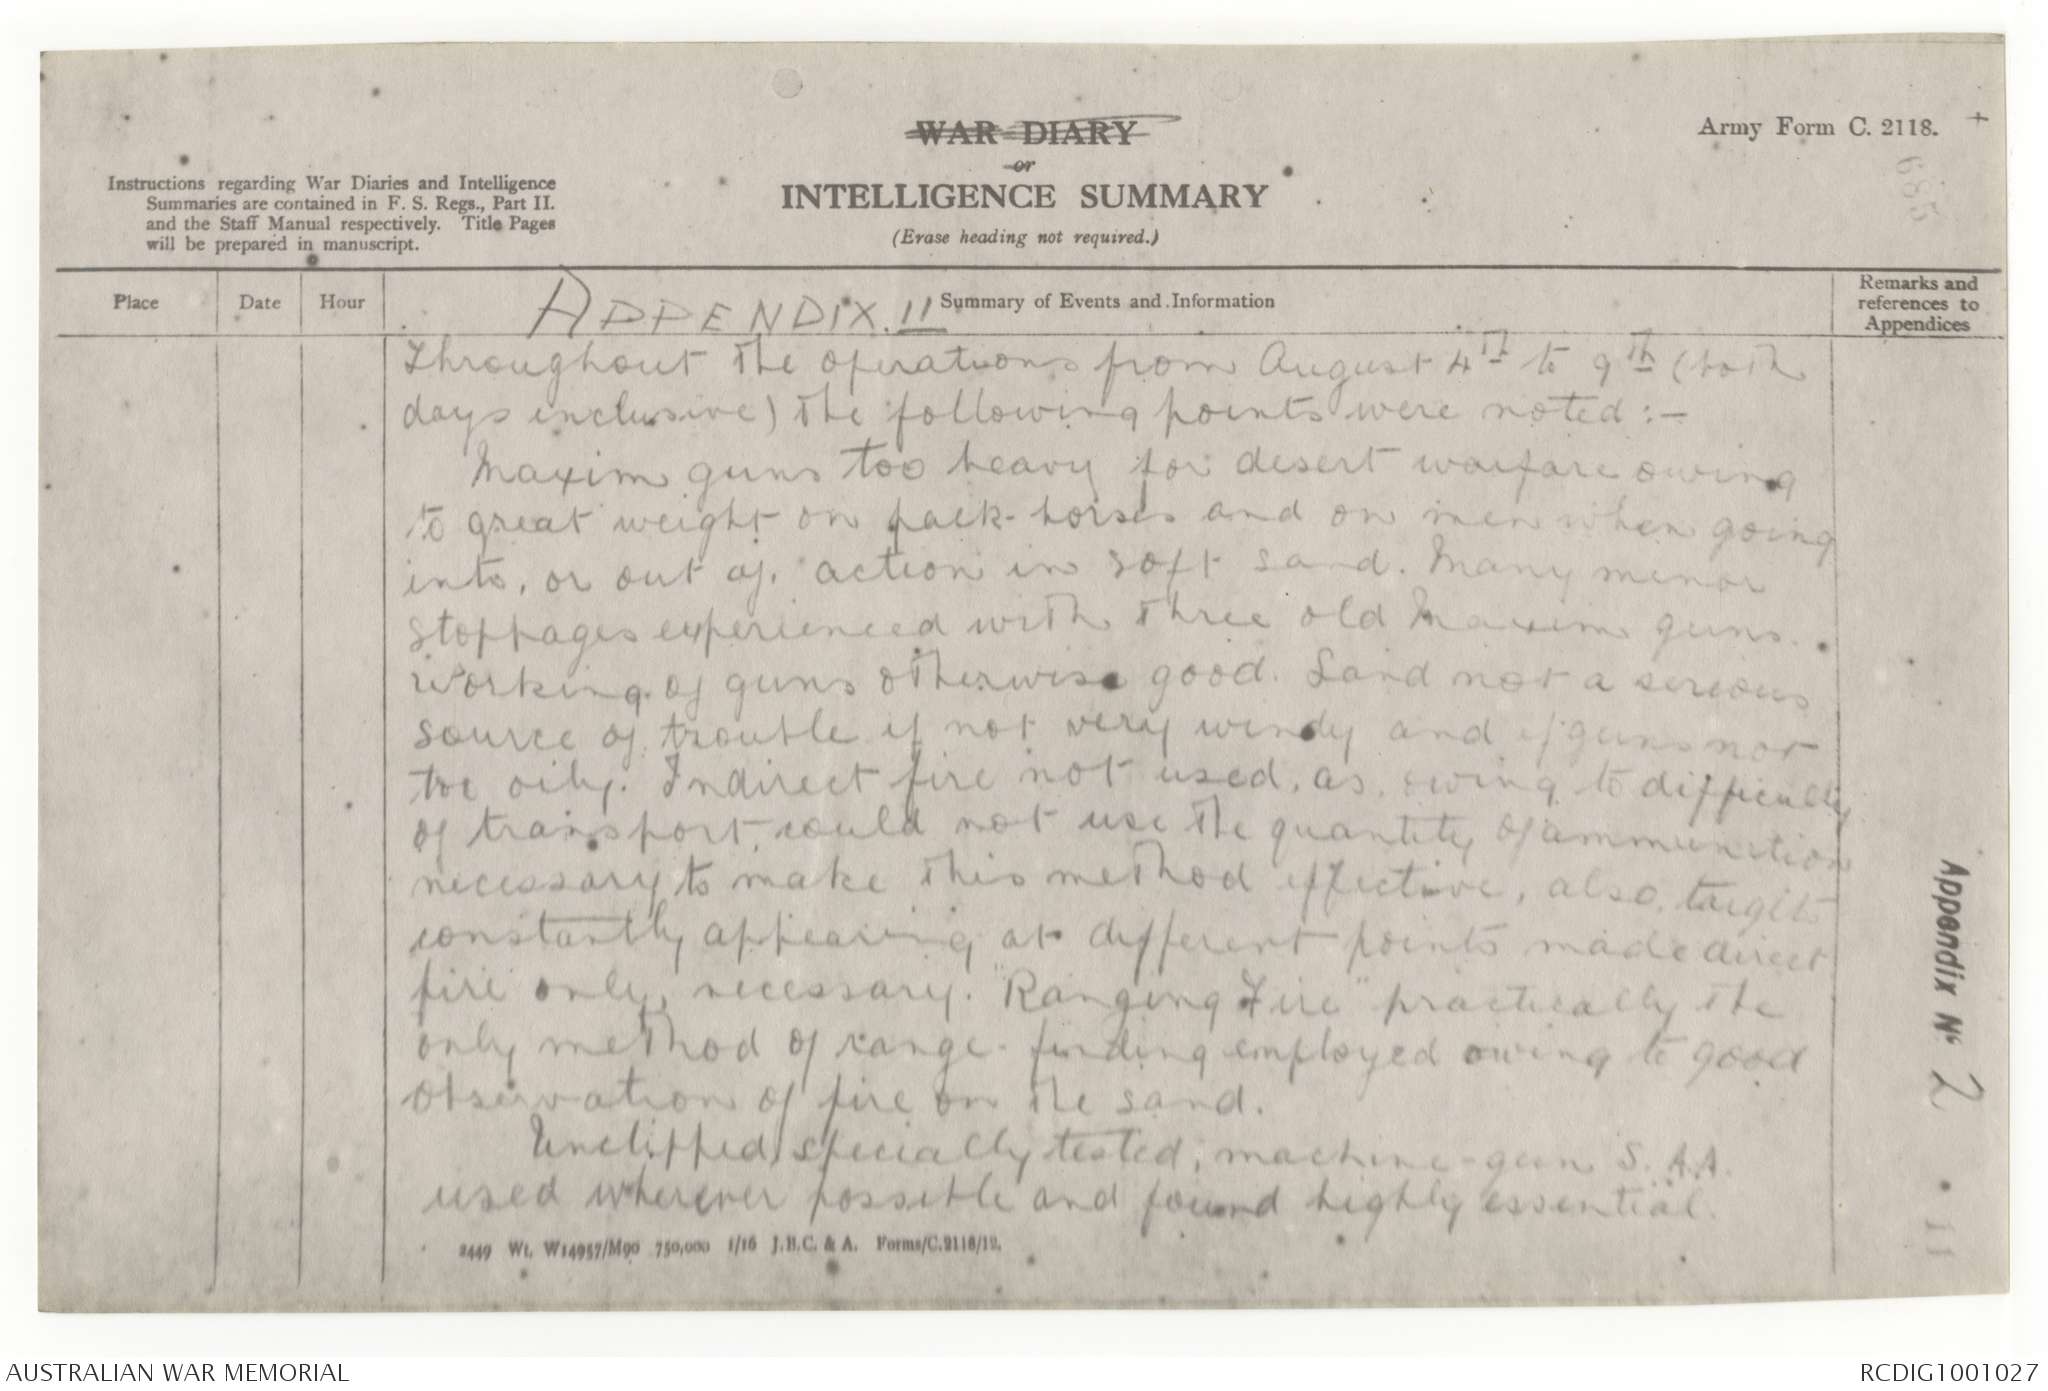 WAR DIARY
or
INTELLIGENCE SUMMARY
(Erase heading not required.)
Army Form C. 2118.
685
Instructions regarding War Diaries and Intelligence
Summaries are contained in F. S. Regs., Part II.
and the Staff Manual respectively. Title Pages
will be prepared in manuscript.
Place
Date
Hour
Summary of Events and Information
Remarks and
references to
Appendices
APPENDIX. II
Throughout the operations from August 4th to 9th (both
days inclusive) the following points were noted :-
Maxim guns too heavy for desert warfare owing
to great weight on pack-horses and on men when going
into, or out of, action in soft sand. Many minor
stoppages experienced with three old Maxim guns.
Working of guns otherwise good. Sand not a serious
source of trouble if not very windy and if guns not
too oily. Indirect fire not used, as, owing to difficulty
of transport, could not use the quantity of ammunition
necessary to make this method effective, also, targets
constantly appearing at different points made direct
fire only, necessary. "Ranging Fire" practically the
only method of range-finding employed owing to good
observation of fire on the sand.
Unclipped, specially tested, machine-gun S.A.A.
used wherever possible and found highly essential.
Appendix No 2
11
2449 Wt. W14957/M90 750,000 1/16 J.B.C. & A. Forms/C.2118/12.
AUSTRALIAN WAR MEMORIAL
RCDIG1001027